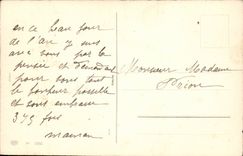 en ce beau jour
de l'an je suis
avec vous par la
pensée et
pour vous tout
le bonheur possible
et vous embrasse
379 fois
maman
Monsieur Madame